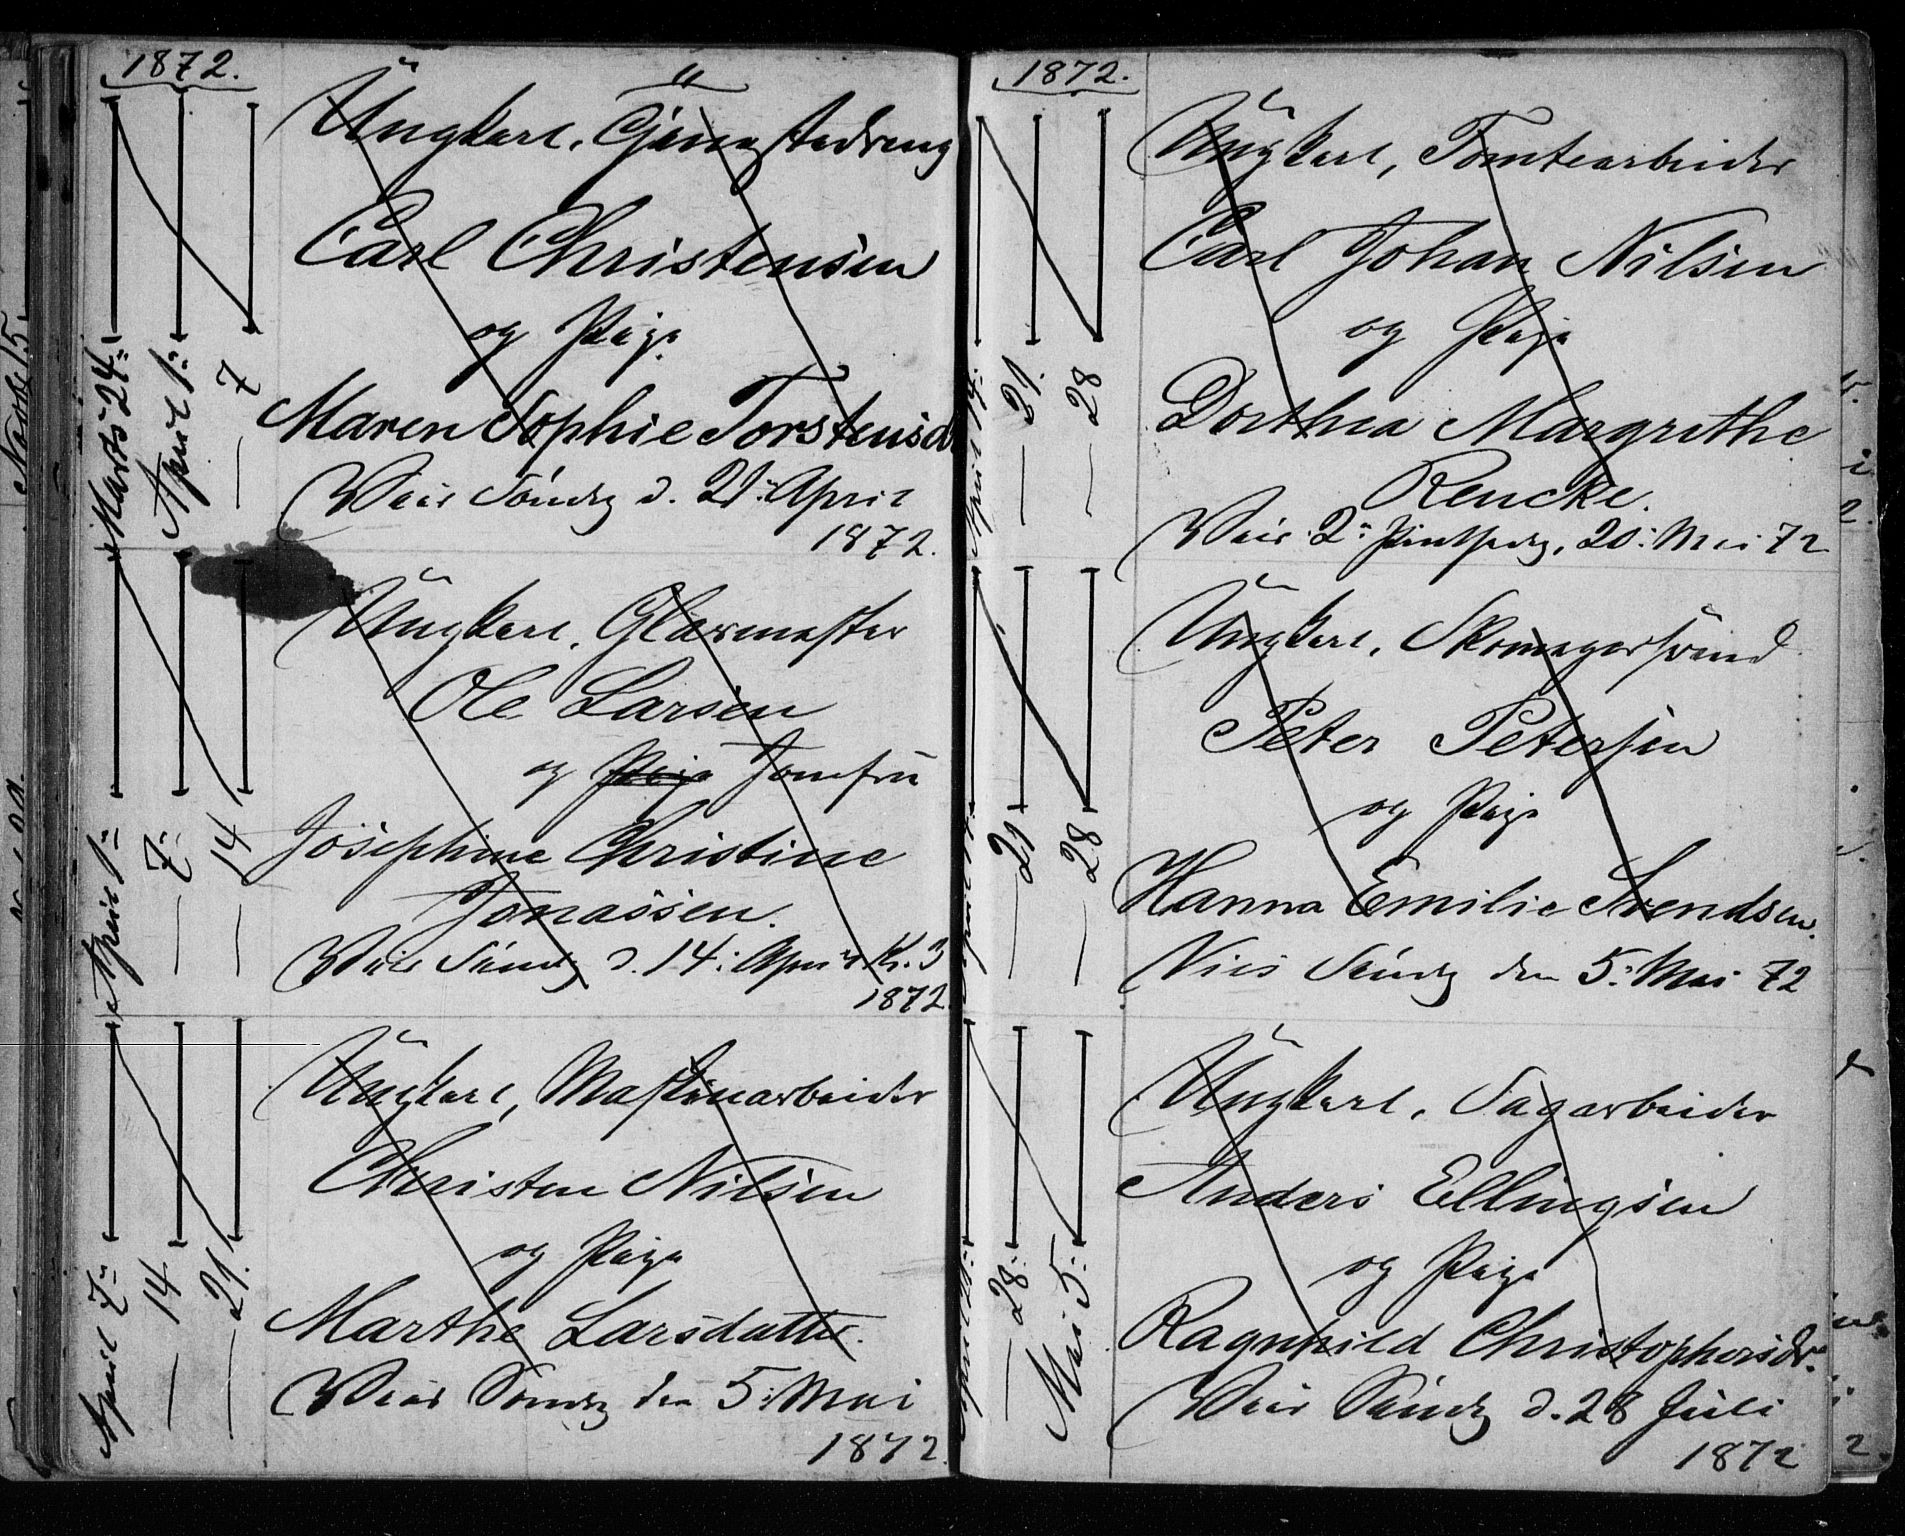 1872.
Marts 24:
April 1:
— 7
Ungkarl,
Carl Christensen
og Pige
Maren Sophie Torstensd
Vies Søndg d. 21: April
1872.
April 1:
— 7:
— 14
Ungkarl, Glasmester
Ole Larsen
og Pige Jomfru
Josephine Christine
Jonassen.
Vies Søndg d. 14: April K. 3
1872
April 7:
— 14
— 21.
Ungkarl, Maskinarbeider
Christen Nilsen
og Pige
Marthe Larsdatter.
Vies Søndg den 5: Mai
1872
1872.
April 14:
— 21.
— 28
Ungkarl, Tomtearbeider
Carl Johan Nilsen
og Pige
Dorthea Margrethe
Rencke.
Vies 2: Pintsedg, 20: Mai 72
April 14:
— 21
— 28
Ungkarl, Skomagersvend
Peter Petersen
og Pige
Hanna Emilie Svendsen.
Vies Søndg den 5: Mai 72
April 21:
— 28:
Mai 5:
Ungkarl, Sagarbeider
Anders Ellingsen
og Pige
Ragnhild Christophersdr.
Vies Søndg d. 28 Juli
1872